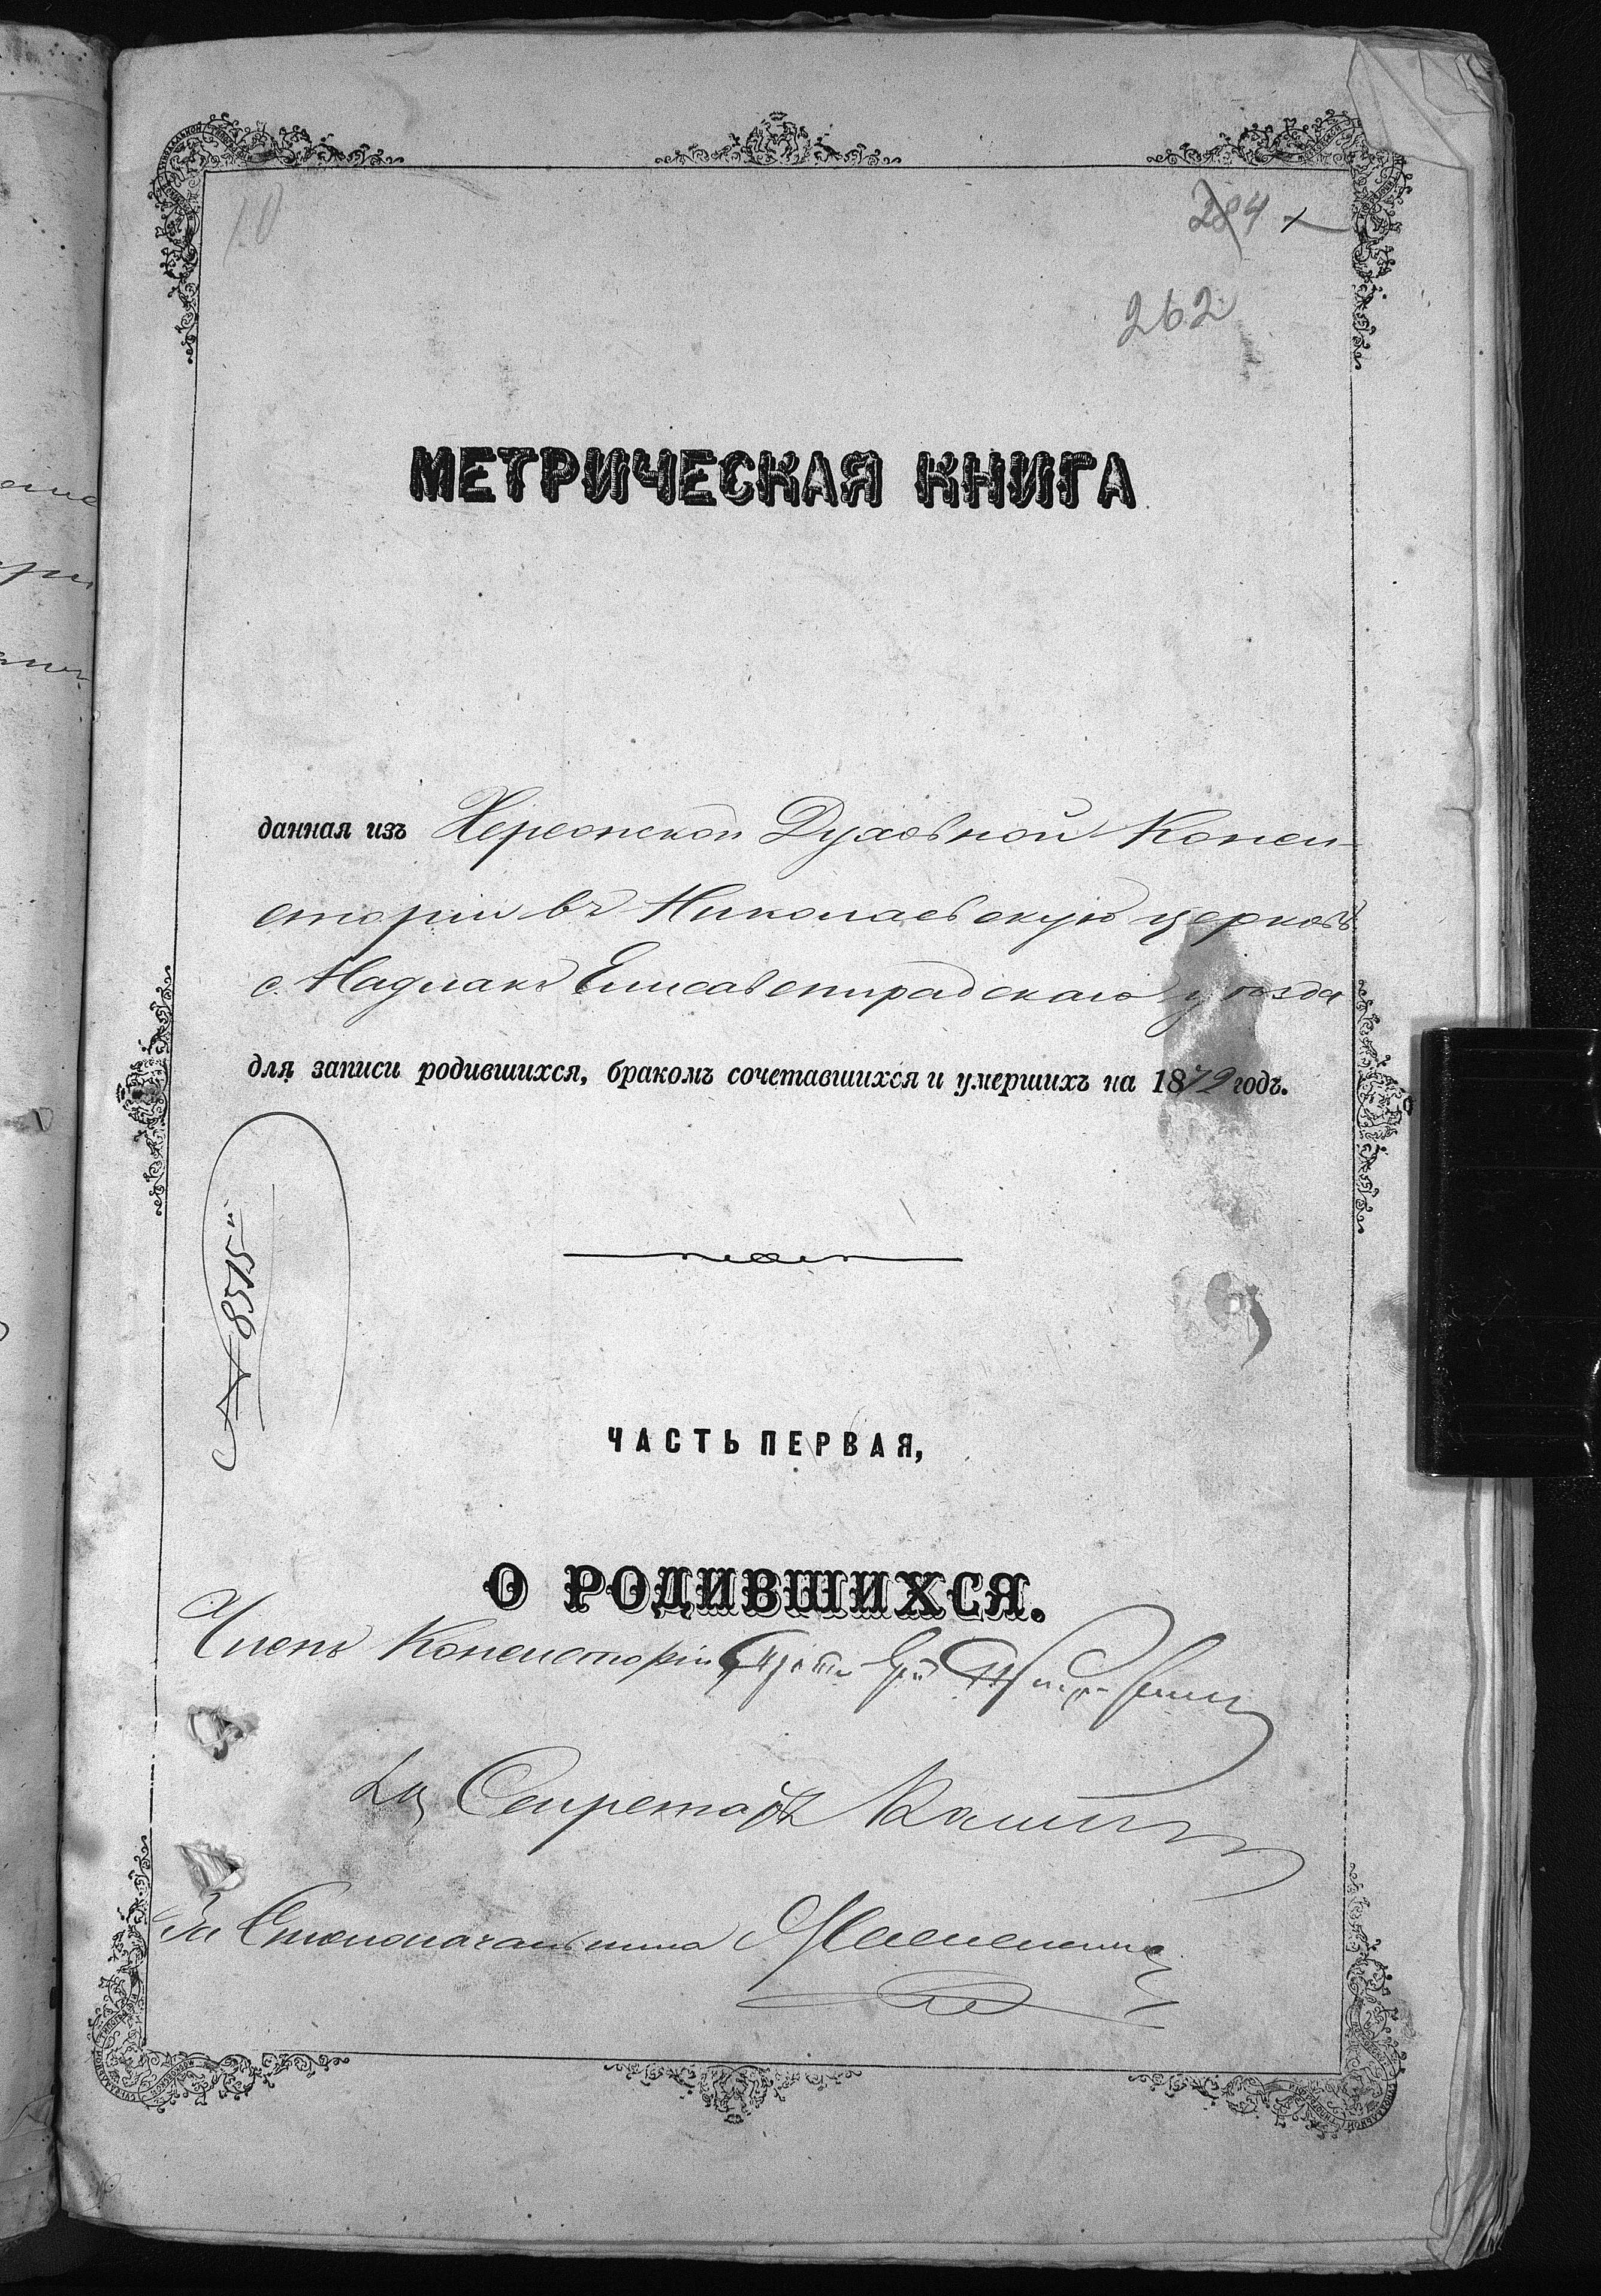 10
204
262
МЕТРИЧЕСКАЯ КНИГА
данная изъ Херсонской Духовной Конси-
сторіи въ Николаевскую церковь
с. Надлакъ Елисаветградскаго уѣзда
для записи родившихся, бракомъ сочетавшихся и умершихъ на 1879 годъ.
№ 8515
ЧАСТЬ ПЕРВАЯ,
О РОДИВШИХСЯ.
Членъ Консисторіи
Секретарь
За Столоначальника